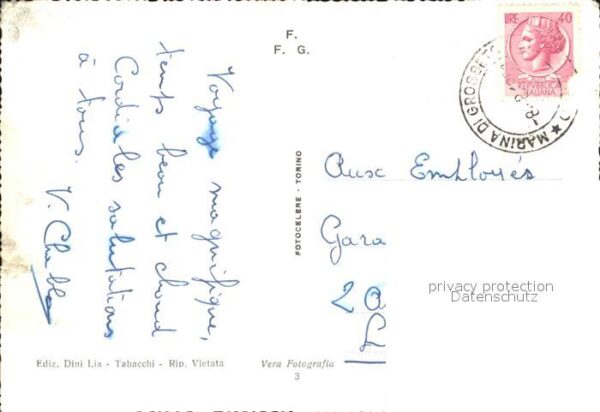 F.
F. G.
LIRE 40
REPVBBLICA
ITALIANA
MARINA DI GROSSETO
Voyage magnifique,
temps beau et chaud
Cordiales salutations
à tous.
V. Chabla
FOTOCELERE - TORINO
Aux Employés
Gara
2 a
L
privacy protection
Datenschutz
Ediz. Dini Lia - Tabacchi - Rip. Vietata
Vera Fotografia
3